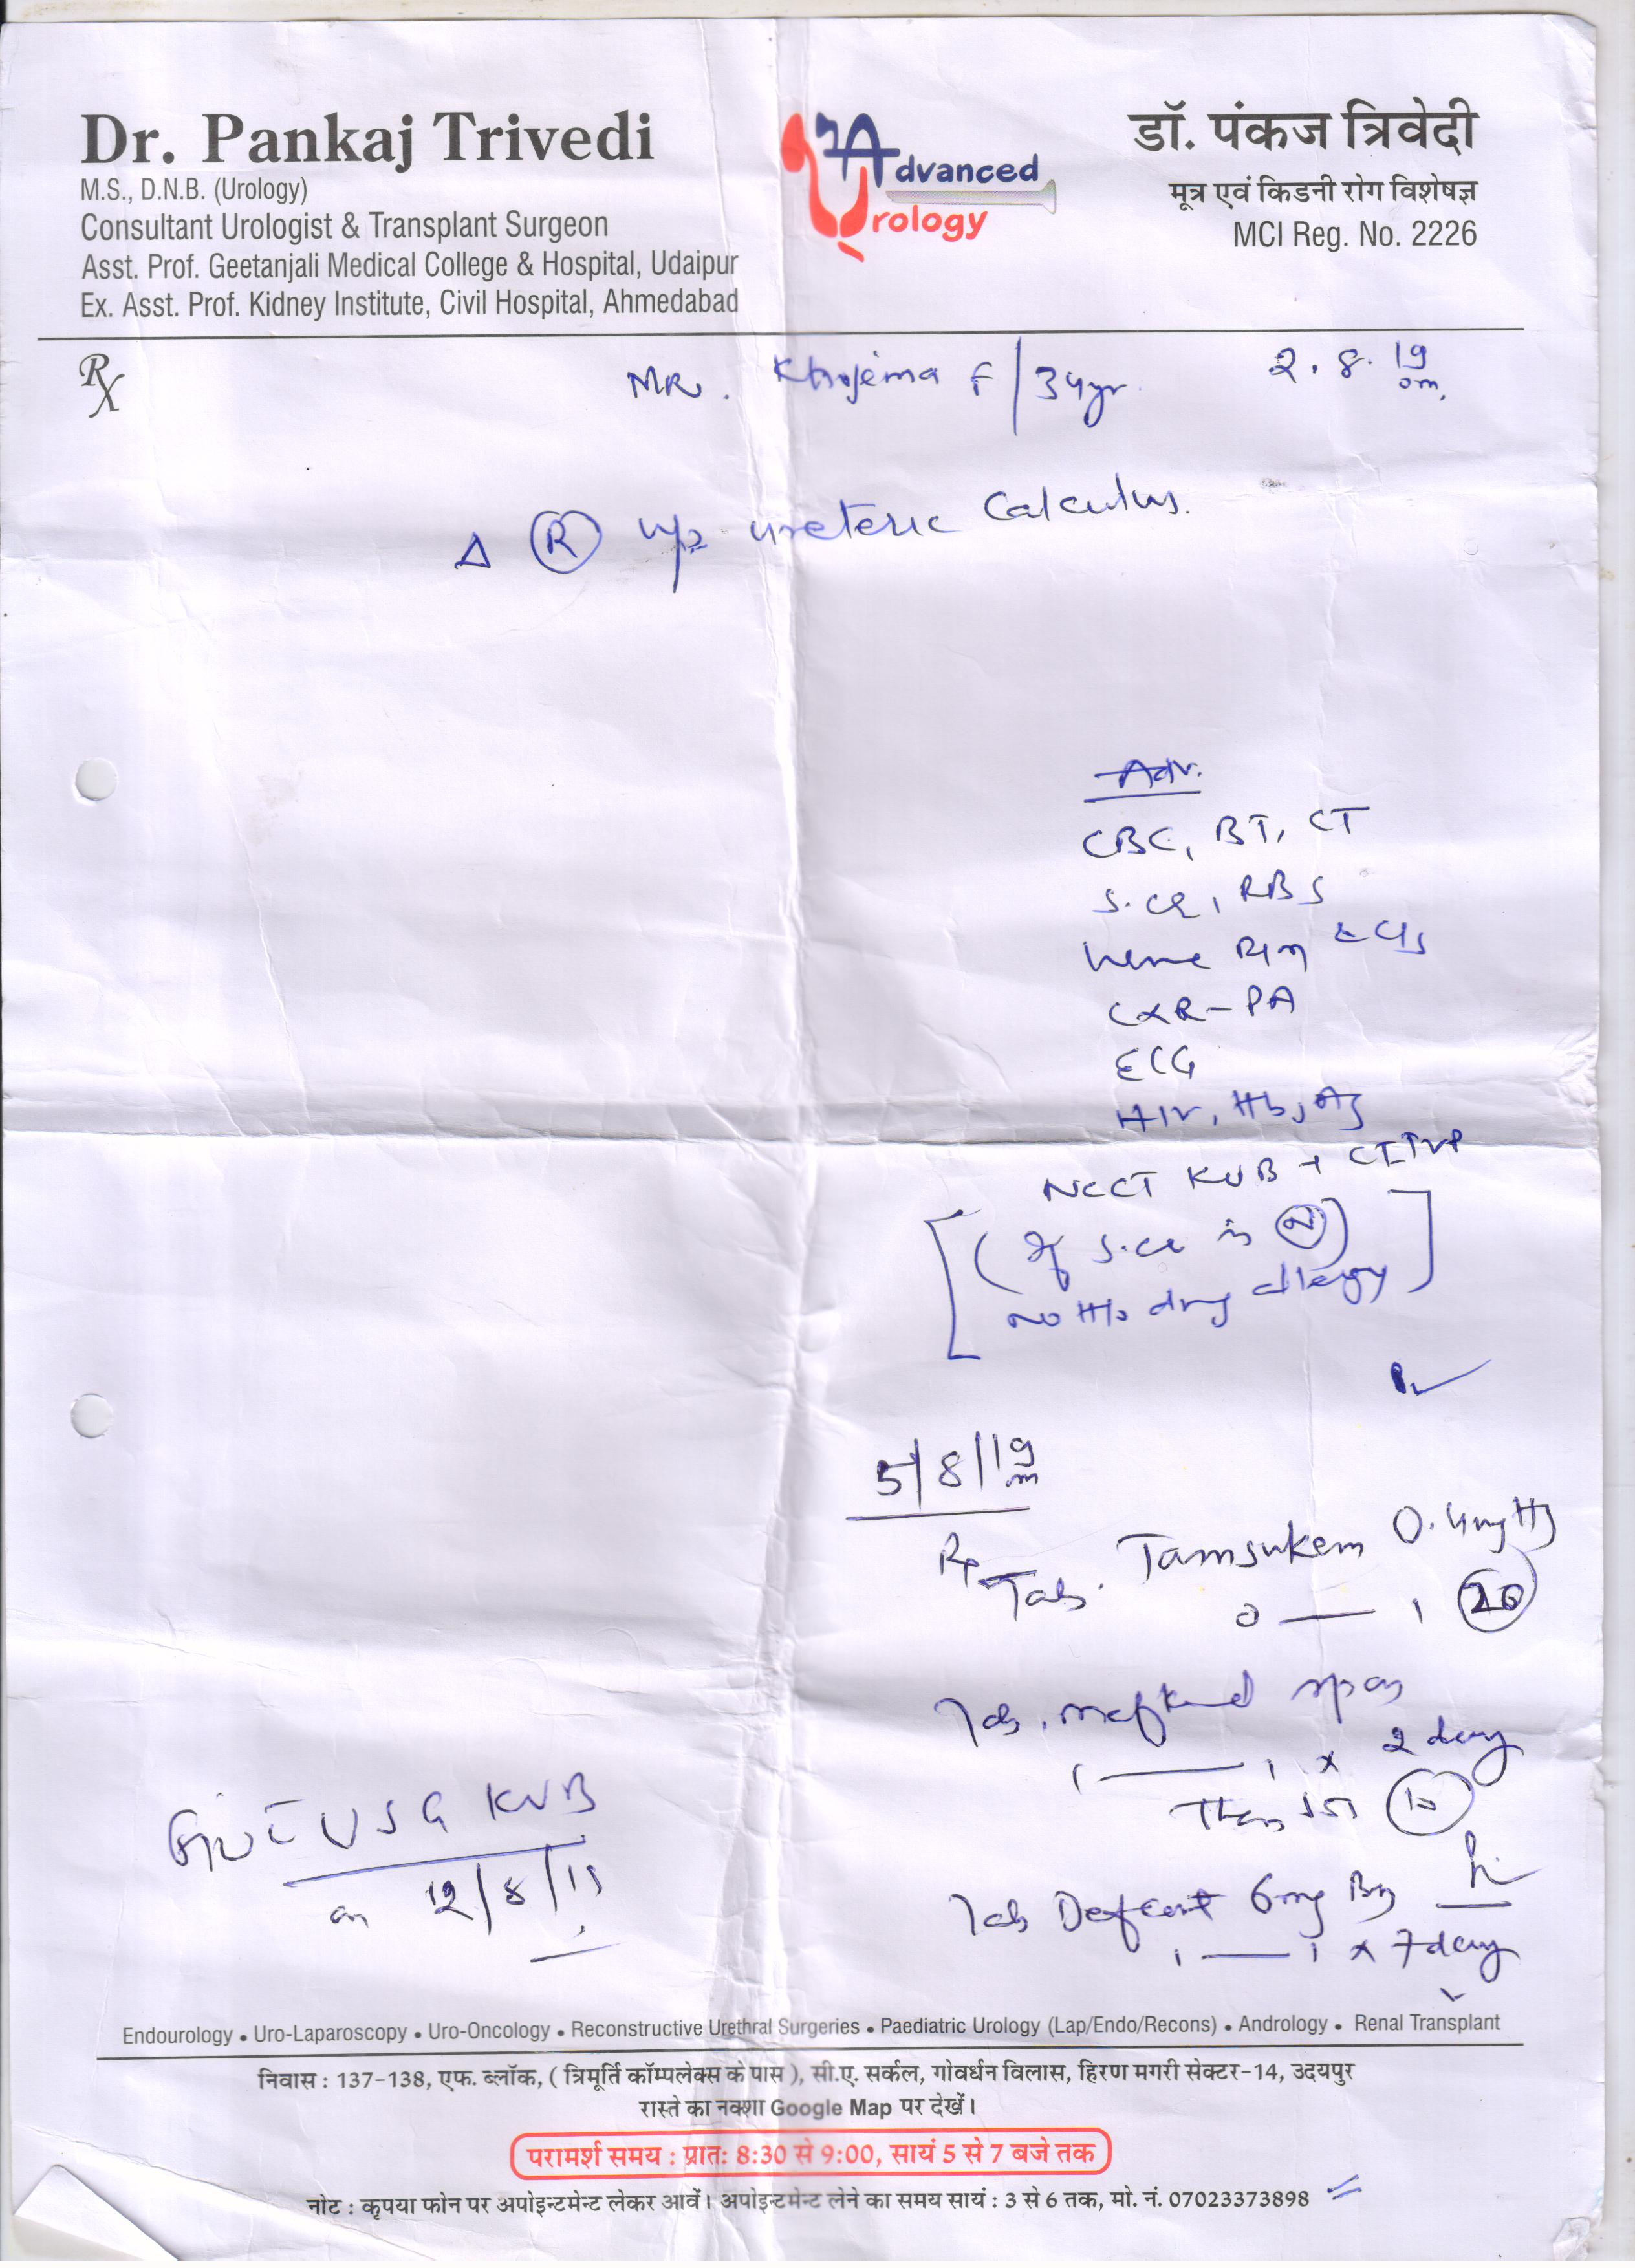 Dr. Pankaj Trivedi
M.S., D.N.B. (Urology)
Consultant Urologist & Transplant Surgeon
Asst. Prof. Geetanjali Medical College & Hospital, Udaipur
Ex. Asst. Prof. Kidney Institute, Civil Hospital, Ahmedabad
Advanced
Urology
डॉ. पंकज त्रिवेदी
मूत्र एवं किडनी रोग विशेषज्ञ
MCI Reg. No. 2226
Rx
MR. Khojema F/34yr. 2.8.19
Δ (R) ureteric Calculus.
Adv.
CBC, BT, CT
S.CR, RBS
Urine R/m
CXR-PA
ECG
HIV, HbsAg
NCCT KUB + CTIVP
[(If S.CR is (N))
No H/o drug allergy]
5/8/19
Rx
Tab. Tamsukem 0.4mg HS
0 — 1 (20)
Tab. mefkind spas
1 — 1 x 2 day
Then SOS (10)
Tab Defcort 6mg
1 — 1 x 7 day
USG KUB
on 12/8/19
Endourology • Uro-Laparoscopy • Uro-Oncology • Reconstructive Urethral Surgeries • Paediatric Urology (Lap/Endo/Recons) • Andrology • Renal Transplant
निवास : 137-138, एफ. ब्लॉक, ( त्रिमूर्ति कॉम्पलेक्स के पास ), सी.ए. सर्कल, गोवर्धन विलास, हिरण मगरी सेक्टर-14, उदयपुर
रास्ते का नक्शा Google Map पर देखें।
परामर्श समय : प्रातः 8:30 से 9:00, सायं 5 से 7 बजे तक
नोट : कृपया फोन पर अपोइन्टमेन्ट लेकर आवें। अपोइन्टमेन्ट लेने का समय सायं : 3 से 6 तक, मो. नं. 07023373898